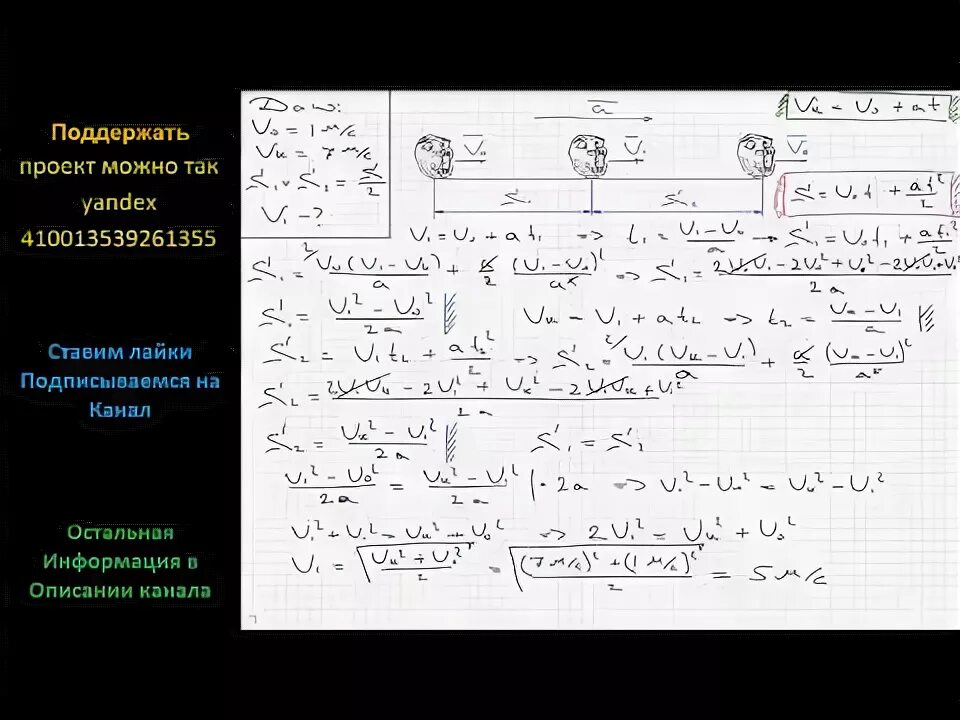 Поддержать
проект можно так
yandex
410013539261355
Ставим лайки
Подписываемся на
Канал
Остальная
Информация в
Описании канала
Дано:
V₀ = 1 м/с
Vк = 7 м/с
S₁ = S₂ = S/2
V₁ - ?
a
Vк = V₀ + at
S = V₀t + at²/2
V₁ = V₀ + at₁ => t₁ = (V₁ - V₀)/a -> S₁ = V₀t₁ + at₁²/2
S₁ = V₀(V₁ - V₀)/a + a/2 (V₁ - V₀)²/a² => S₁ = (2V₀V₁ - 2V₀² + V₁² - 2V₁V₀ + V₀²)/2a
S₁ = (V₁² - V₀²)/2a
Vк = V₁ + at₂ => t₂ = (Vк - V₁)/a
S₂ = V₁t₂ + at₂²/2 => S₂ = V₁(Vк - V₁)/a + a/2 (Vк - V₁)²/a²
S₂ = (2V₁Vк - 2V₁² + Vк² - 2V₁Vк + V₁²)/2a
S₂ = (Vк² - V₁²)/2a
S₁ = S₂
(V₁² - V₀²)/2a = (Vк² - V₁²)/2a |·2a => V₁² - V₀² = Vк² - V₁²
V₁² + V₁² = Vк² + V₀² => 2V₁² = Vк² + V₀²
V₁ = √((Vк² + V₀²)/2) = √(((7 м/с)² + (1 м/с)²)/2) = 5 м/с